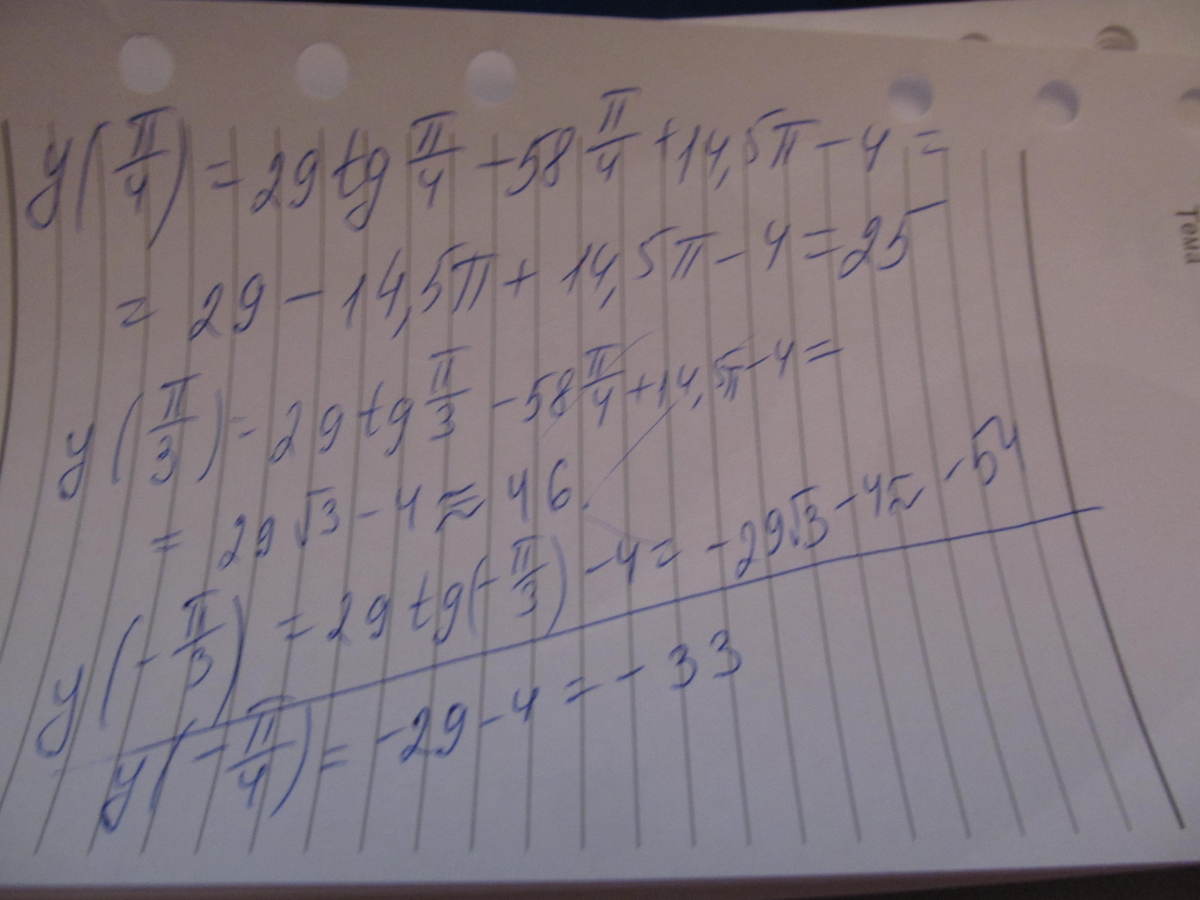 y(π/4) = 29 tg π/4 - 58 π/4 + 14,5π - 4 =
= 29 - 14,5π + 14,5π - 4 = 25
y(π/3) = 29 tg π/3 - 58 π/4 + 14,5π - 4 =
= 29√3 - 4 ≈ 46.
y(-π/3) = 29 tg(-π/3) - 4 = -29√3 - 4 ≈ -54
y(-π/4) = -29 - 4 = -33
Тема